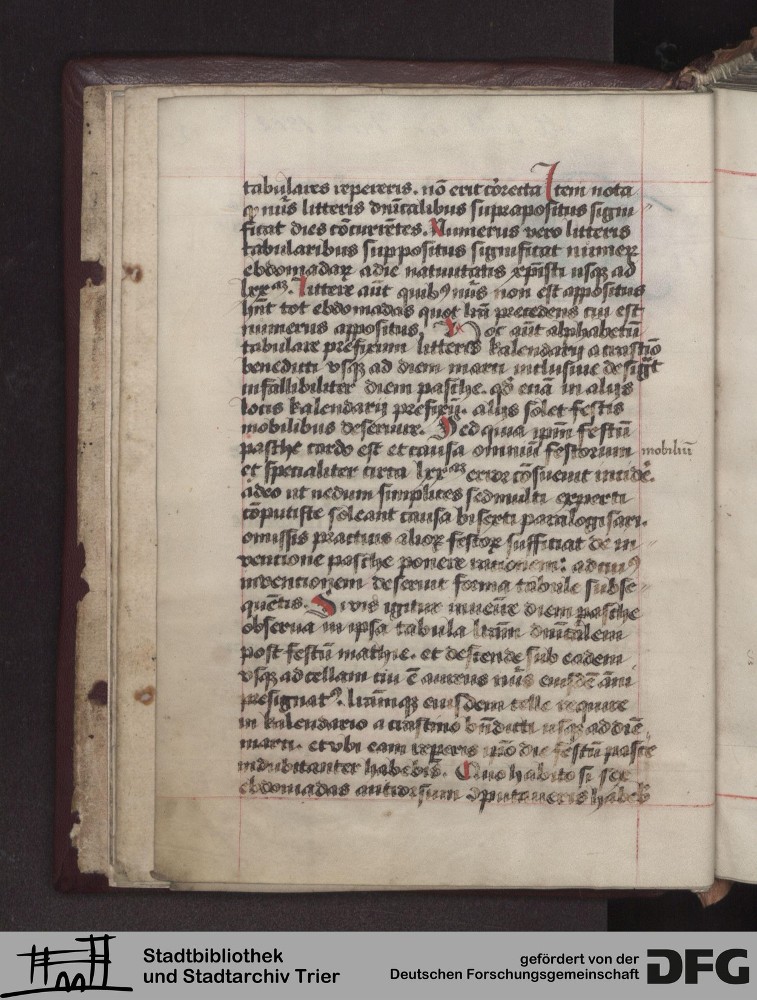 tabulares repereris. nō erit cōrecta Item nota
ꝙ nūs litteris dnīcalibus suprapositus signi
ficat dies cōcurrētes. Numerus vero litteris
tabularibus suppositus significat numeꝝ
ebdomadaꝝ a die natiuitatis xp̄isti usqꝫ ad
lxxᵃᵐ. littere aūt quibꝰ nūs non est appositus
hn̄t tot ebdomadas quot lrā precedens cui est
numerus appositus. Hoc aūt alphabetū
tabulare prefixum litteris kalendarij a crastīo
benedicti vsqꝫ ad diem marci inclusiue desig͞t
infallibiliter diem pasche. qd̄ eciā in alijs
locis kalendarij prefixū. alijs solet festis
mobilibus deseruire. Sed quia ipm̄ festū
pasche cardo est et causa omniū festorum mobiliū
et specialiter circa lxxᵃᵐ error cōsueuit incidē.
adeo ut nedum simplices sed multi experti
cōputiste soleant causa bisexti paralogisari.
omissis practicis alioꝝ festoꝝ sufficiat de in
uentione pasche ponere racionem: ad cuiꝰ
inuentionem deseruit forma tabule subse
quētis. Si vis igitur inuenire diem pasche
obserua in ipsa tabula lrām dnīcalem
post festū mathie. et descende sub eadem
vsqꝫ ad cellam cui ē aureus nūs eiusdē āni
presignatꝰ. lrāmqꝫ eiusdem celle require
in kalendario a crastino bn̄dicti usqꝫ ad diē
marci. et vbi eam repperis illo die festū pasce
indubitanter habebis. Quo habito si sex
ebdomadas antrorsum cōputaueris habeb
Stadtbibliothek
und Stadtarchiv Trier
gefördert von der
Deutschen Forschungsgemeinschaft
DFG